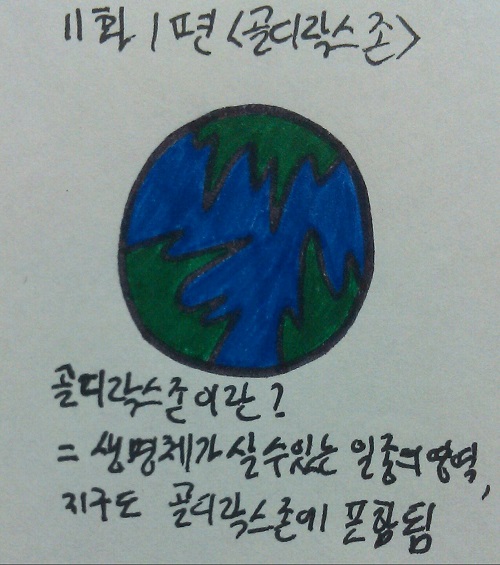 11화 1편 <골디락스 존>
골디락스존이란?
= 생명체가 살수있는 일종의영역,
지구도 골디락스존에 포함됨